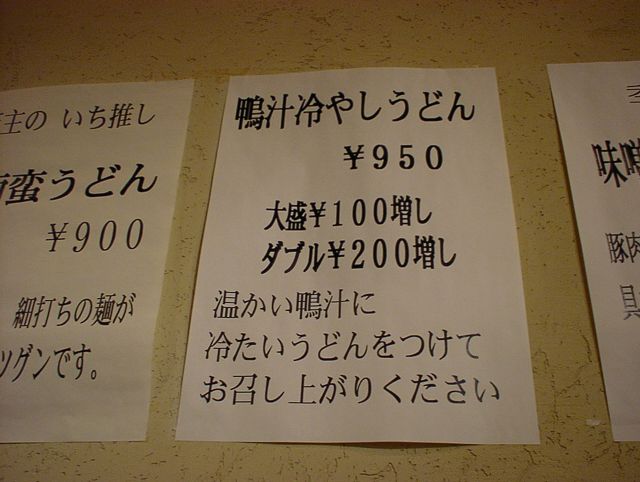 主の いち推し
蛮うどん
￥900
細打ちの麺が
ツグンです。
鴨汁冷やしうどん
￥950
大盛￥100増し
ダブル￥200増し
温かい鴨汁に
冷たいうどんをつけて
お召し上がりください
味噌
豚肉
具